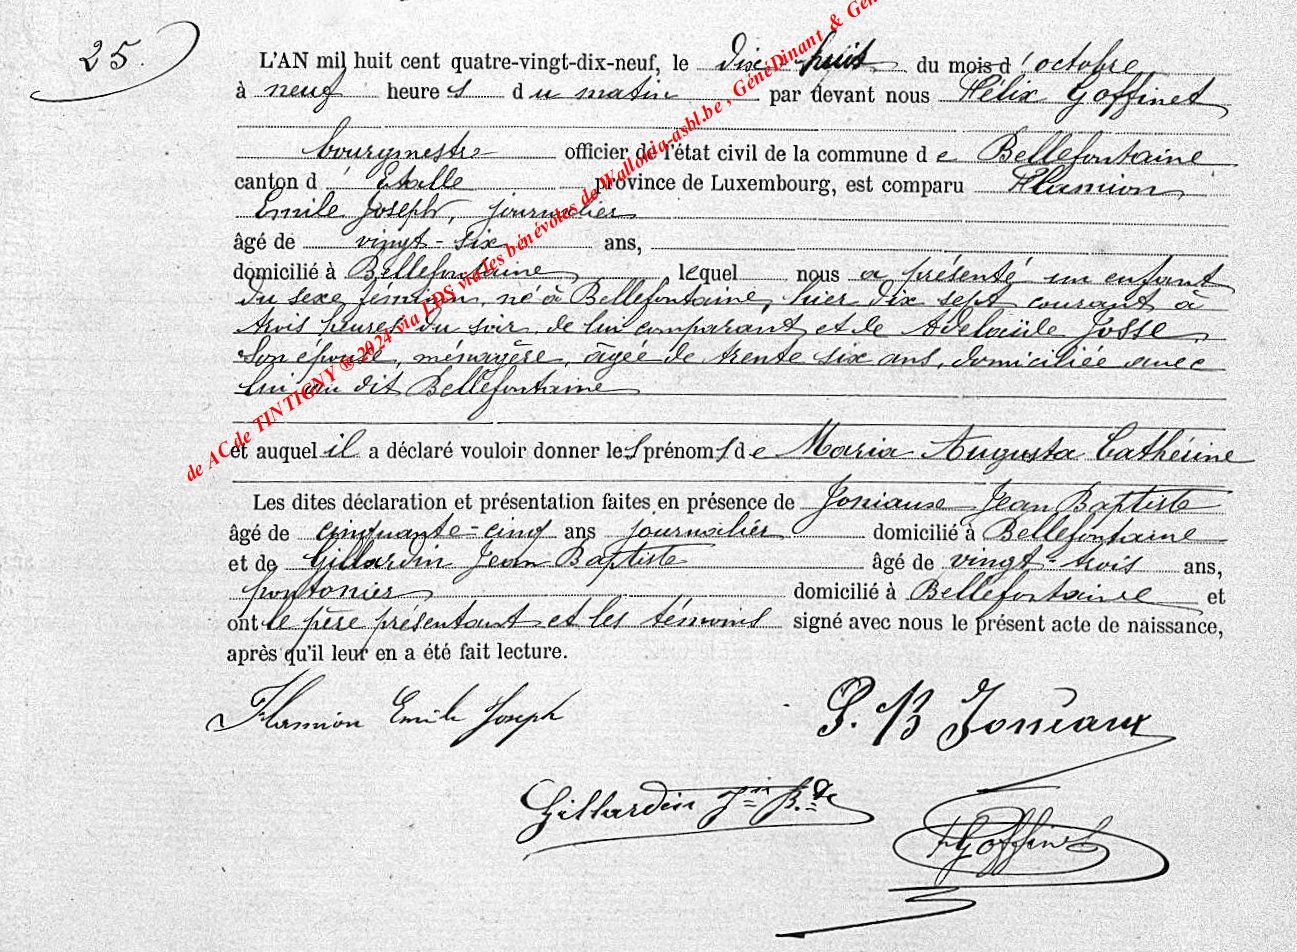 25.
L'AN mil huit cent quatre-vingt-dix-neuf, le dix huit du mois d'octobre
à neuf heures du matin par devant nous Félix Goffinet
bourgmestre officier de l'état civil de la commune de Bellefontaine
canton d'Etalle province de Luxembourg, est comparu Flamion
Emile Joseph, journalier
âgé de vingt-six ans,
domicilié à Bellefontaine lequel nous a présenté un enfant
du sexe féminin, né à Bellefontaine, hier dix sept courant à
trois heures du soir, de lui comparant et de Adelaïde Josse,
son épouse, ménagère, âgée de trente six ans, domiciliée avec
lui au dit Bellefontaine
et auquel il a déclaré vouloir donner les prénoms de Maria Augusta Cathérine
Les dites déclaration et présentation faites en présence de Joniaux Jean Baptiste
âgé de cinquante-cinq ans journalier domicilié à Bellefontaine
et de Gillardin Jean Baptiste âgé de vingt-trois ans,
pontonier domicilié à Bellefontaine et
ont le père présentant et les témoins signé avec nous le présent acte de naissance,
après qu'il leur en a été fait lecture.
Flamion Emile Joseph
J. B Joniaux
Gillardin Jn Bte
F Goffinet
de AC de TINTIGNY ® 2024 via LDS via les bénévoles de Wallonia-asbl.be, GénéDinant & Gén